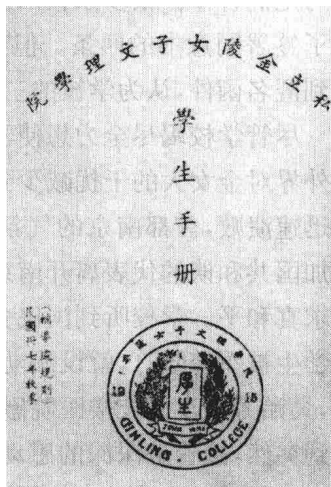 私立金陵女子文理學院
學生手冊
導處規則
民國卅七年秋季
金陵女子文理學院
19 15
厚生
GINLING COLLEGE